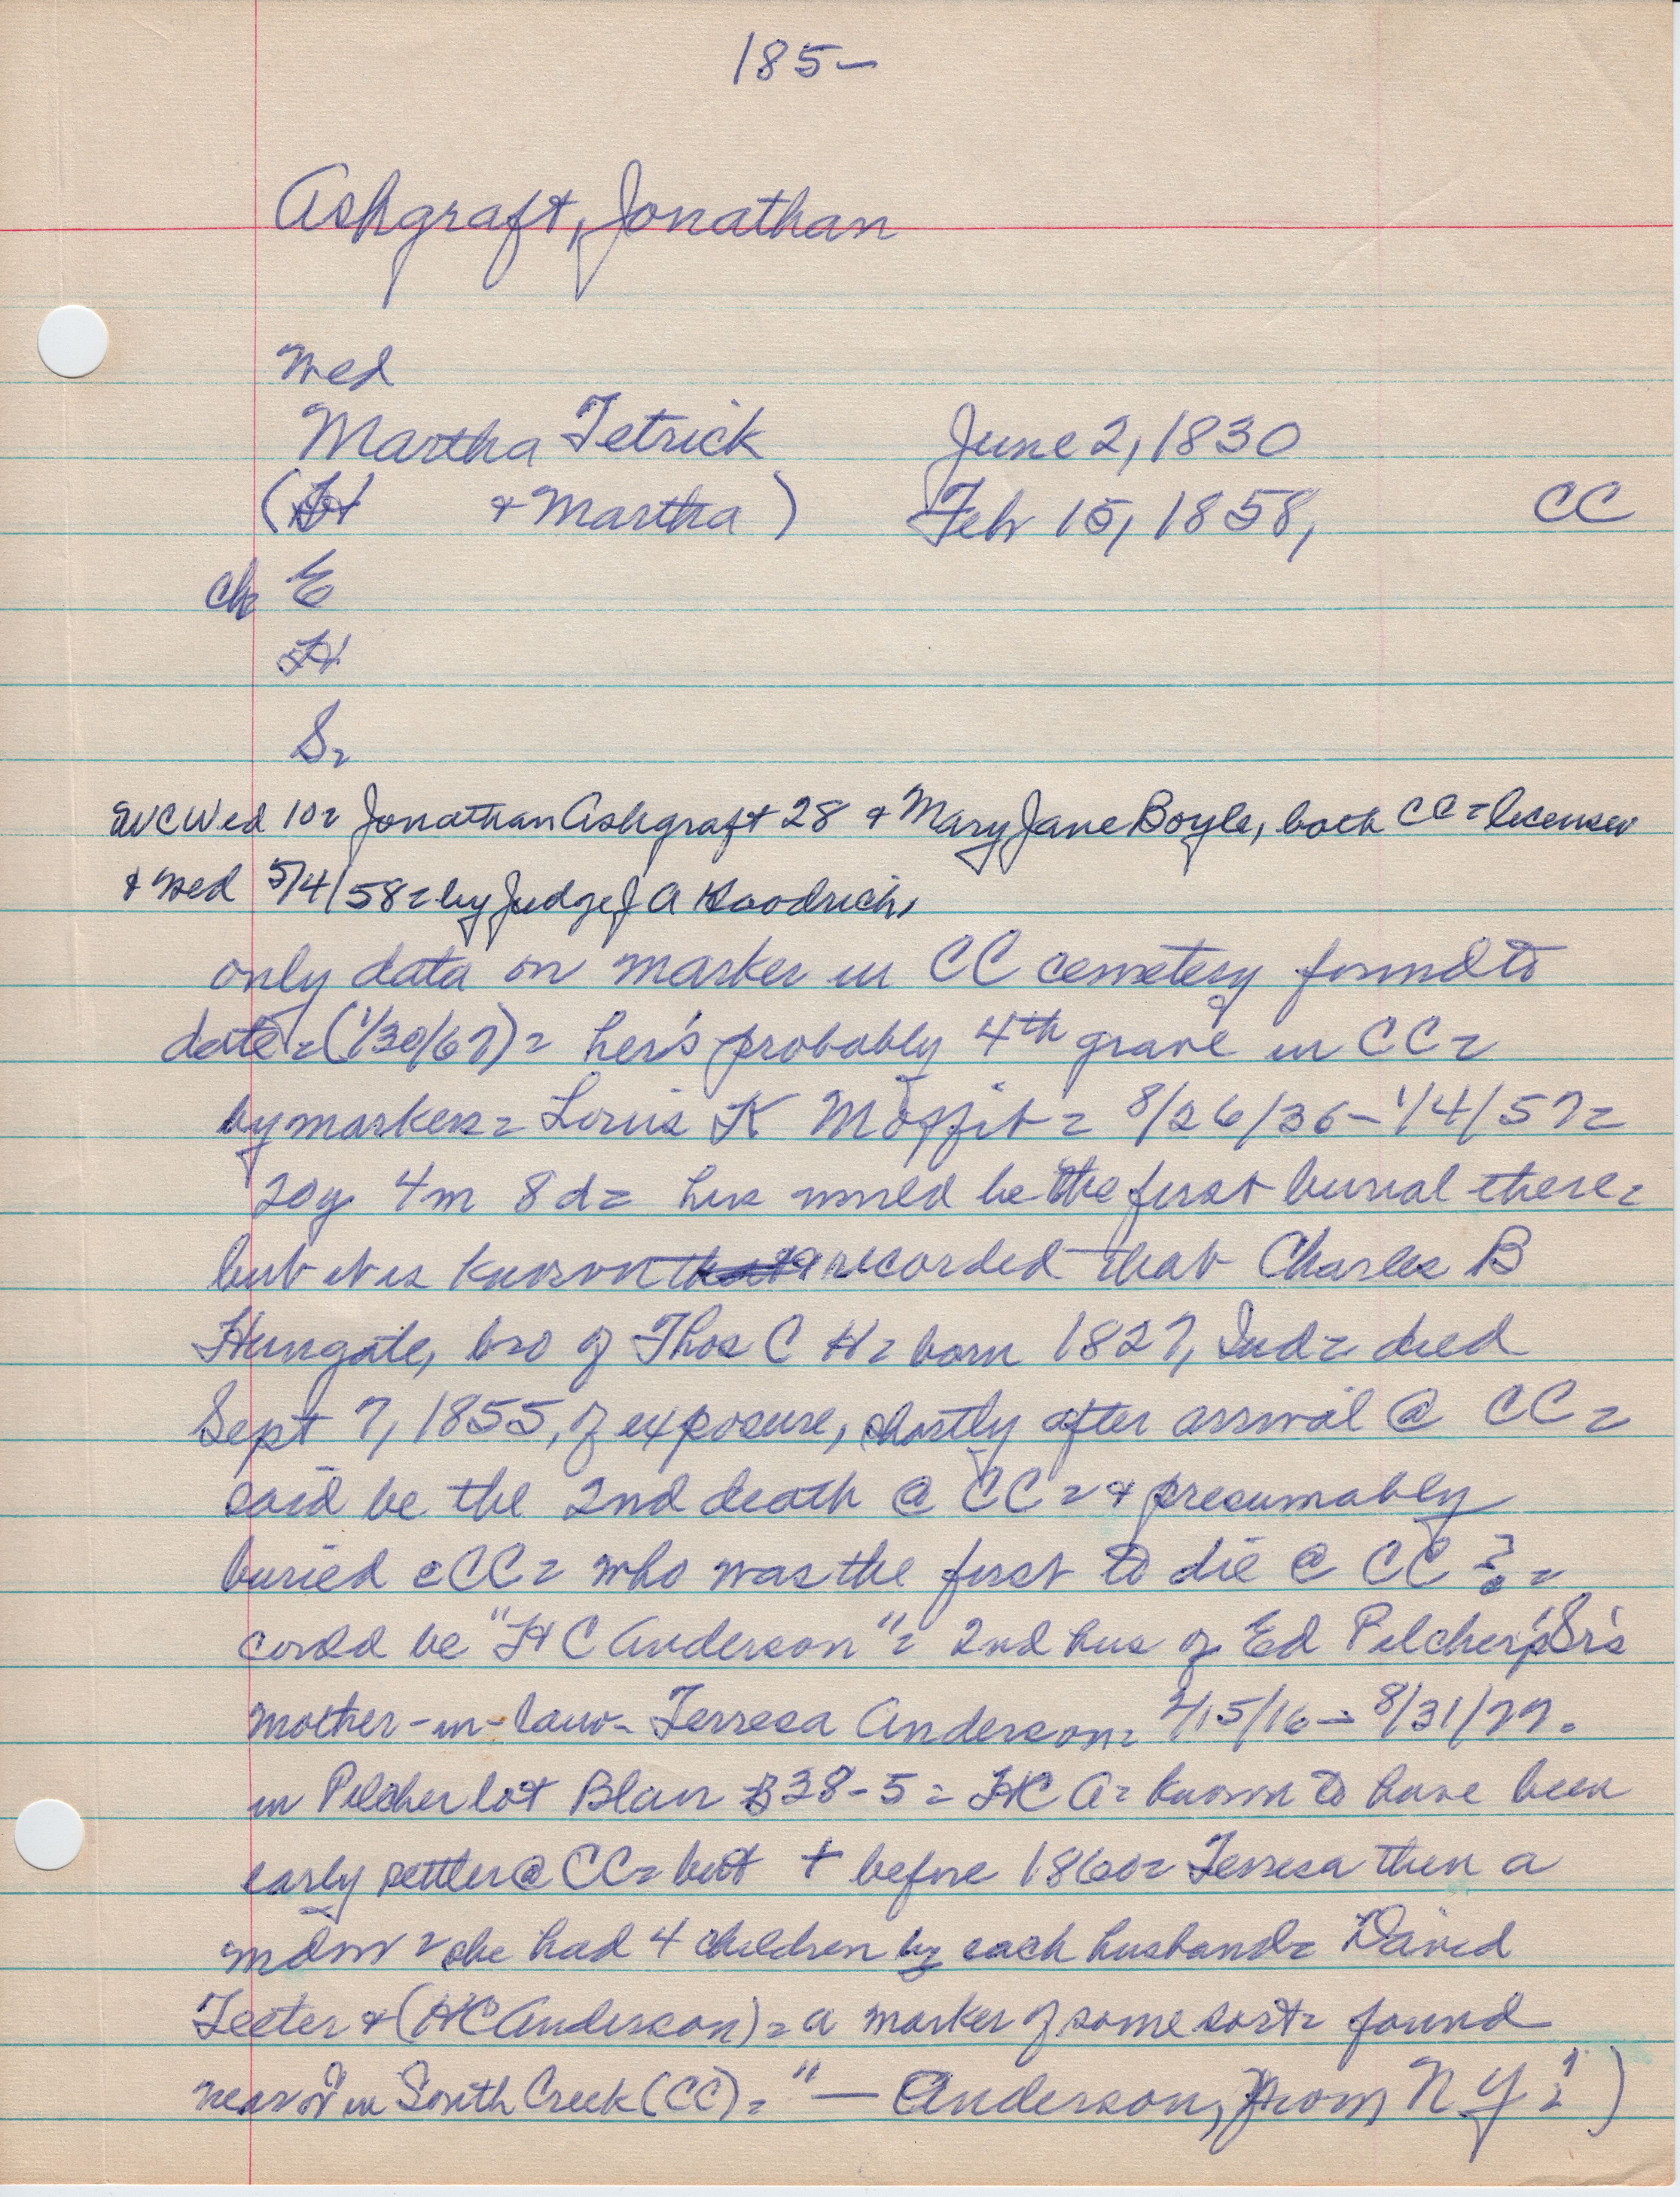 185–
Ashgraft, Jonathan
wed
Martha Tetrick June 2, 1830
(H + Martha) Feb 15, 1858, CC
ch E
H
S=
WCWed 10= Jonathan Ashgraft 28 + Mary Jane Boyle, both CC = license
+ wed 5/4/58 = by Judge J A Goodrich,
only data on marker in CC cemetery found to
date = (1/30/67) = her's probably 4th grave in CC =
by markers = Louis K Moffit = 8/26/36 – 1/4/57 =
20y 4m 8d = his would be the first burial there =
but it is known + recorded that Charles B
Hungate, bro of Thos C H = born 1827, Ind = died
Sept 7, 1855, of exposure, shortly after arrival @ CC =
said be the 2nd death @ CC = + presumably
buried @ CC = who was the first to die @ CC ? =
could be "H C Anderson" = 2nd hus of Ed Pilcher, Sr's
mother-in-law – Terresa Anderson = /15/16 – 8/31/77 =
in Pilcher lot Blair B38-5 = HC A = known to have been
early settler @ CC = but + before 1860 = Terresa then a
widow = she had 4 children by each husband = David
Teeter + (HC Anderson) = a marker of some sort = found
near or in South Creek (CC) = "— Anderson, from N Y" = )